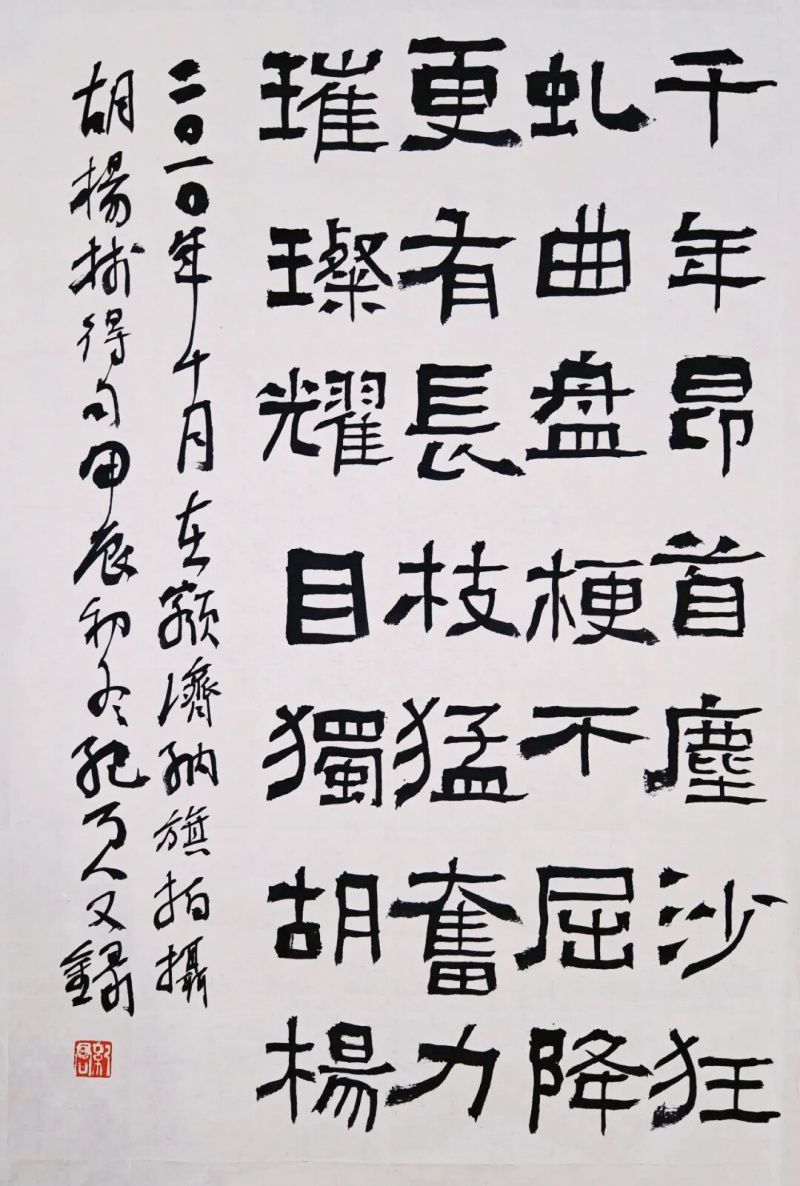 千年昂首塵沙狂
虬曲盘梗不屈降
更有長枝猛奮力
璀璨耀目獨胡楊
二〇一〇年十月在额濟納旗拍攝
胡楊林得句甲辰初冬紀万人又録